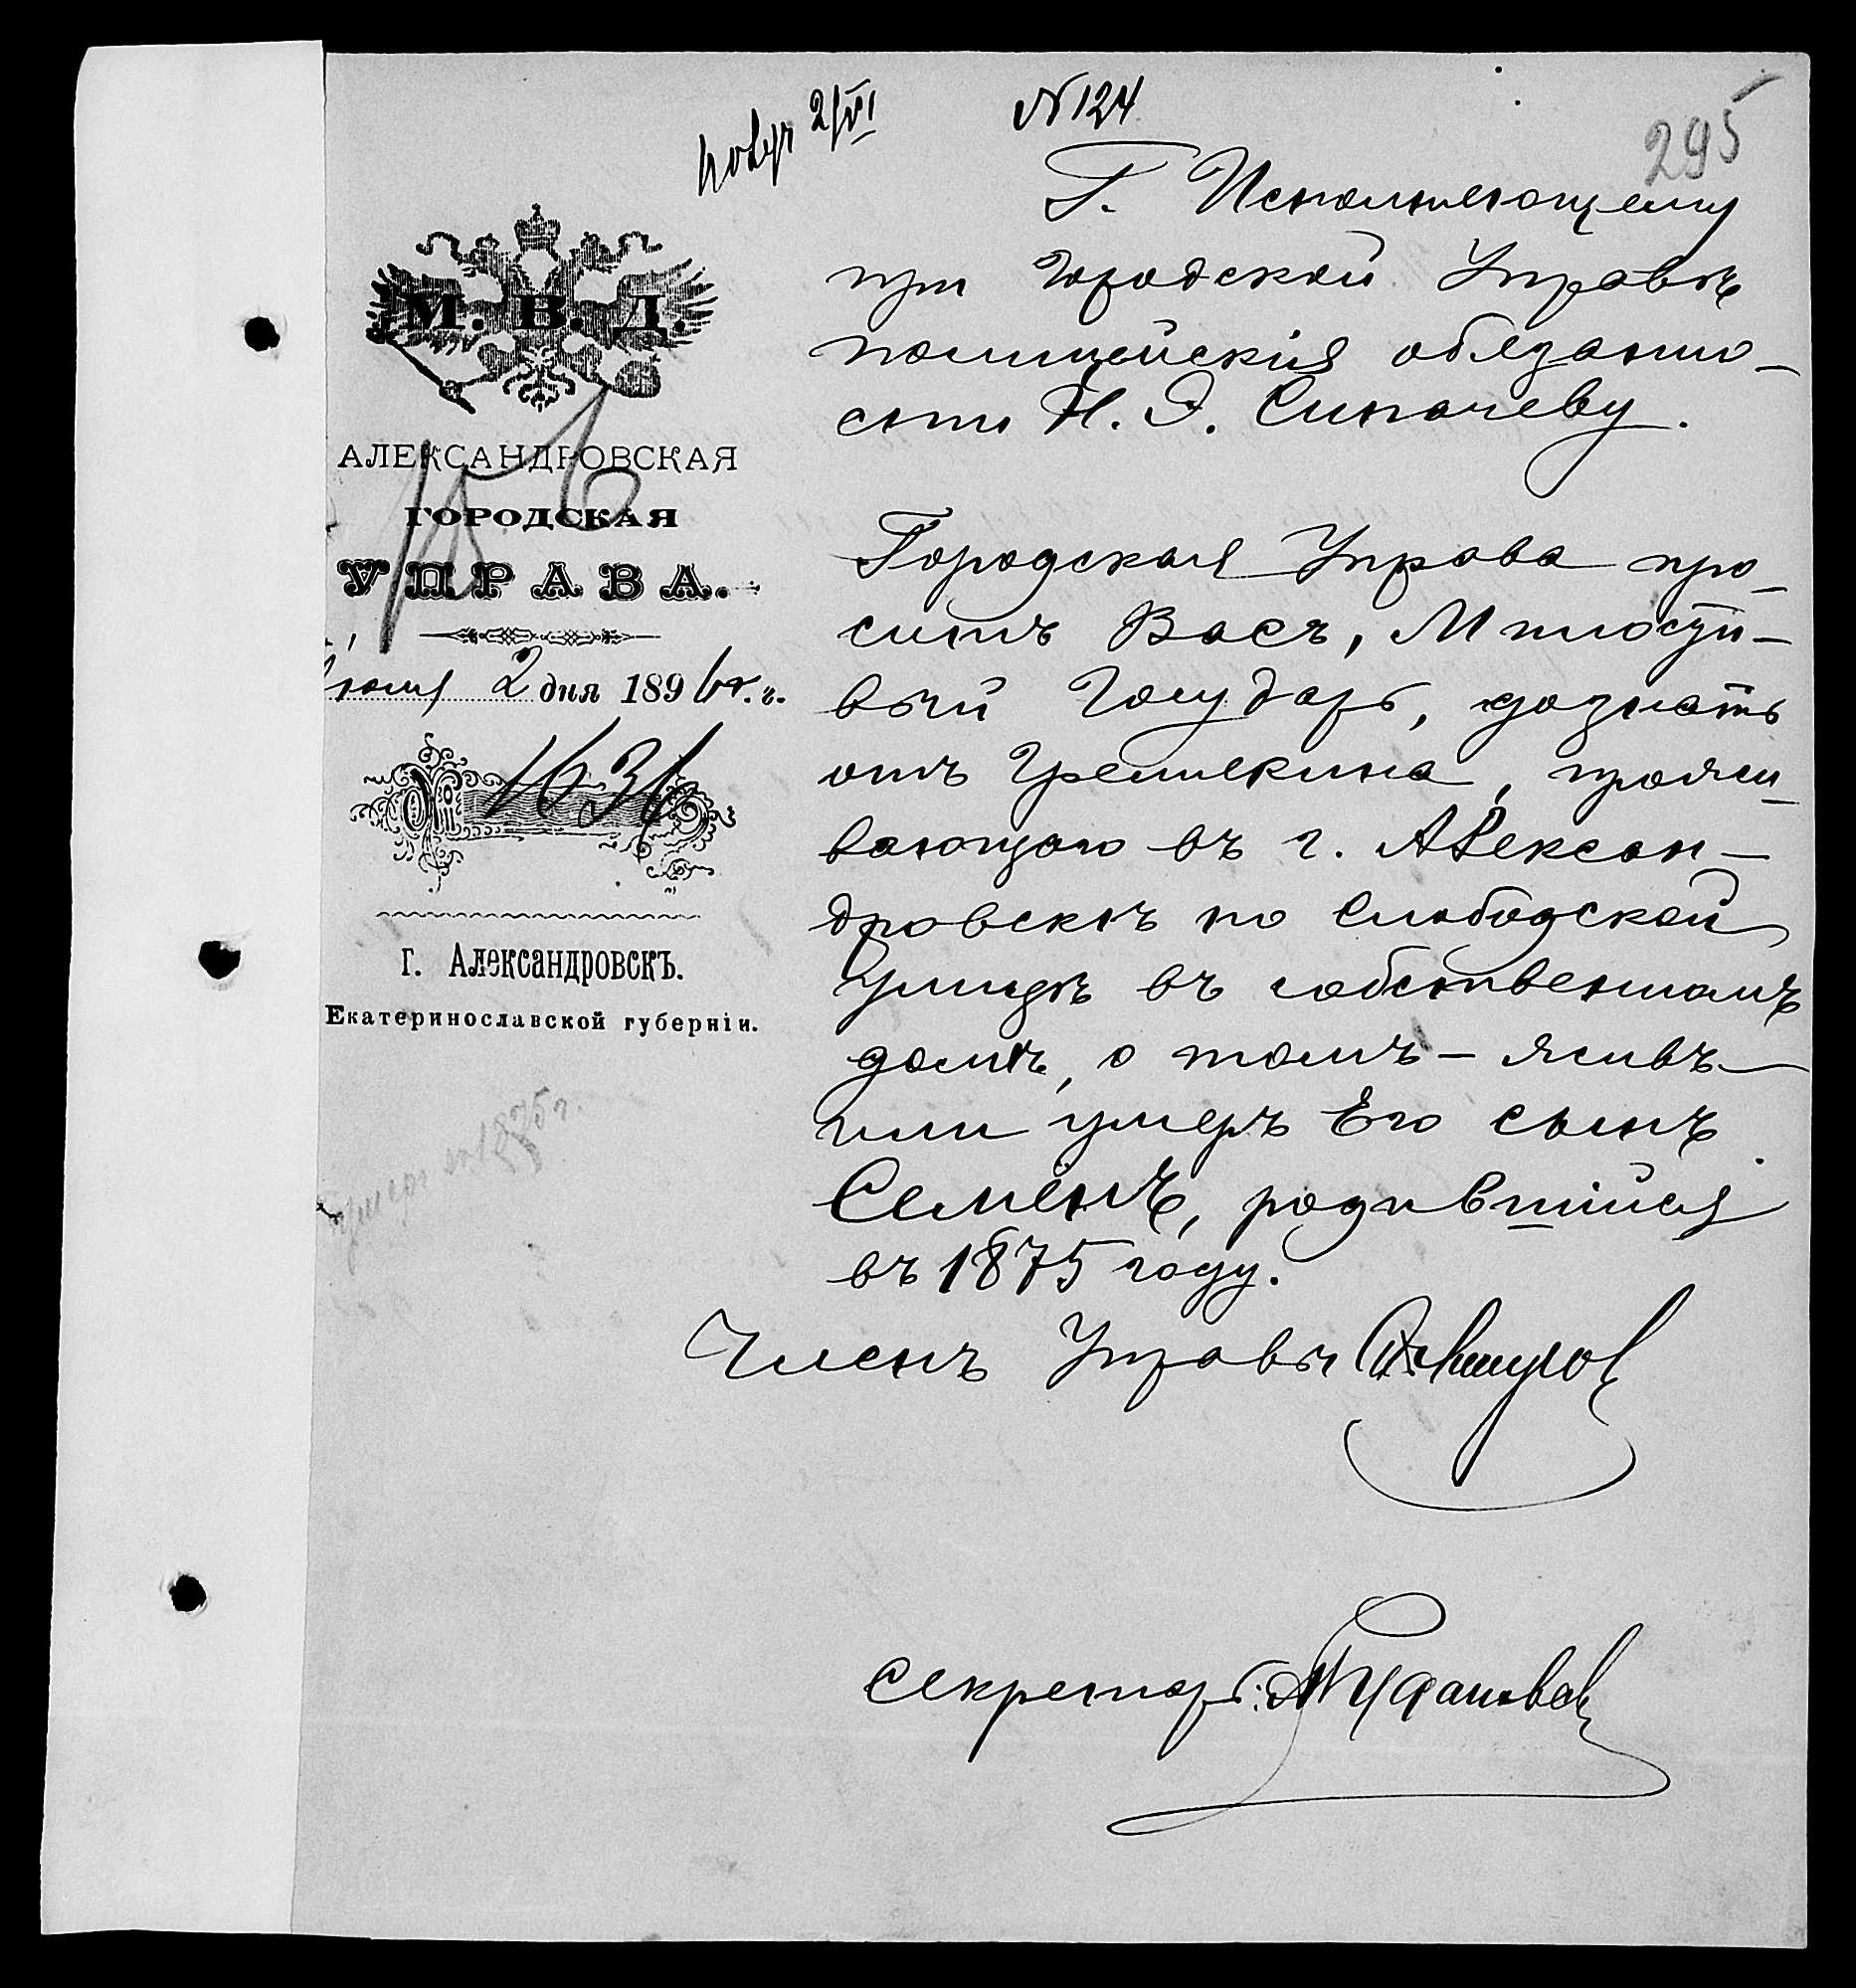 № 124
2/VI
295
Г. Исполняющему
при Городской Управѣ
полицейскія обязанно-
сти Н. Э. Сипачеву.
М. В. Д.
АЛЕКСАНДРОВСКАЯ
ГОРОДСКАЯ
УПРАВА.
Іюня 2 дня 1896 г.
№ 1636
г. Александровскъ.
Екатеринославской губерніи.
Городская Управа про-
ситъ Васъ, Милости-
вый Государь, дознать
отъ Гремлекина, прожи-
вающаго въ г. Алексан-
дровскѣ по Слободской
улицѣ въ собственномъ
домѣ, о томъ - живъ
или умеръ Его сынъ
Семёнъ, родившійся
въ 1875 году.
умеръ въ 1875 г.
Членъ Управы
Секретарь: